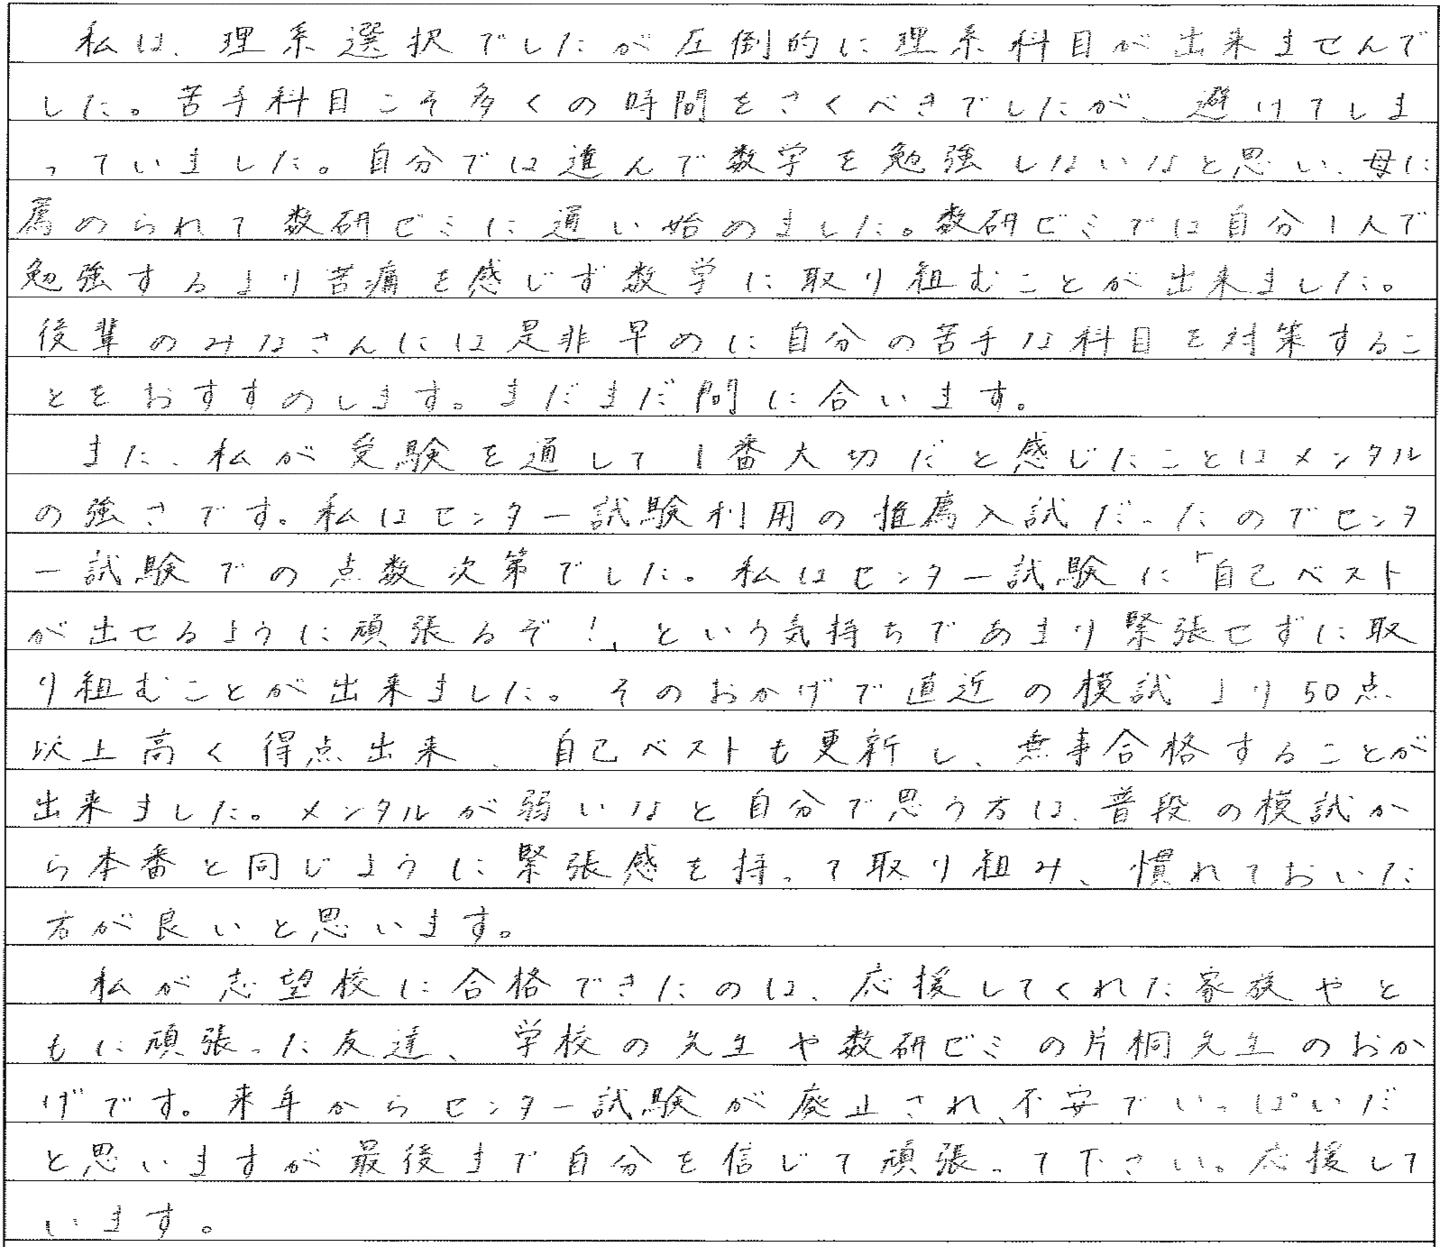 私は、理系選択でしたが圧倒的に理系科目が出来ませんで
した。苦手科目こそ多くの時間をさくべきでしたが、避けてしま
っていました。自分では進んで数学を勉強しないなと思い、母に
薦められて数研ゼミに通い始めました。数研ゼミでは自分1人で
勉強するより苦痛を感じず数学に取り組むことが出来ました。
後輩のみなさんには是非早めに自分の苦手な科目を対策するこ
とをおすすめします。まだまだ間に合います。
また、私が受験を通して1番大切だと感じたことはメンタル
の強さです。私はセンター試験利用の推薦入試だったのでセンタ
ー試験での点数次第でした。私はセンター試験に「自己ベスト
が出せるように頑張るぞ!」という気持ちであまり緊張せずに取
り組むことが出来ました。そのおかげで直近の模試より50点
以上高く得点出来、自己ベストも更新し、無事合格することが
出来ました。メンタルが弱いなと自分で思う方は、普段の模試か
ら本番と同じように緊張感を持って取り組み、慣れておいた
方が良いと思います。
私が志望校に合格できたのは、応援してくれた家族やと
もに頑張った友達、学校の先生や数研ゼミの片桐先生のおか
げです。来年からセンター試験が廃止され、不安でいっぱいだ
と思いますが最後まで自分を信じて頑張って下さい。応援して
います。